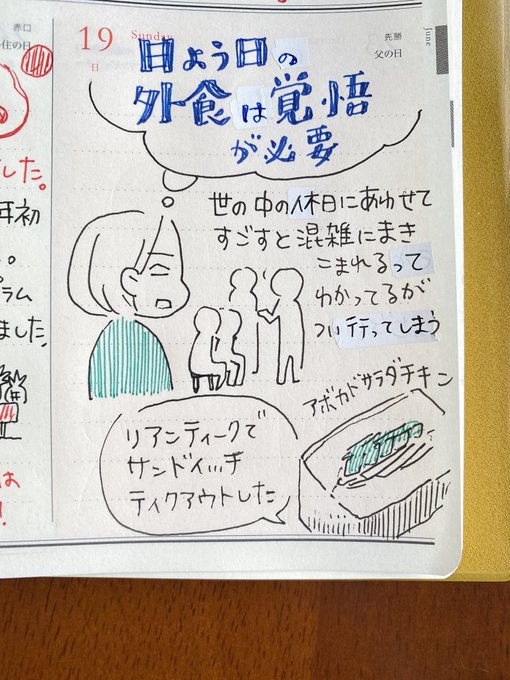 赤口
住の日
した。
年初
ラム
ました、
は
!
19 Sunday
日
先勝
父の日
June
日よう日の
外食は覚悟
が必要
世の中の休日にあわせて
すごすと混雑にまき
こまれるって
わかってるが
つい行ってしまう
アボカドサラダチキン
リアンティークで
サンドイッチ
ティクアウトした